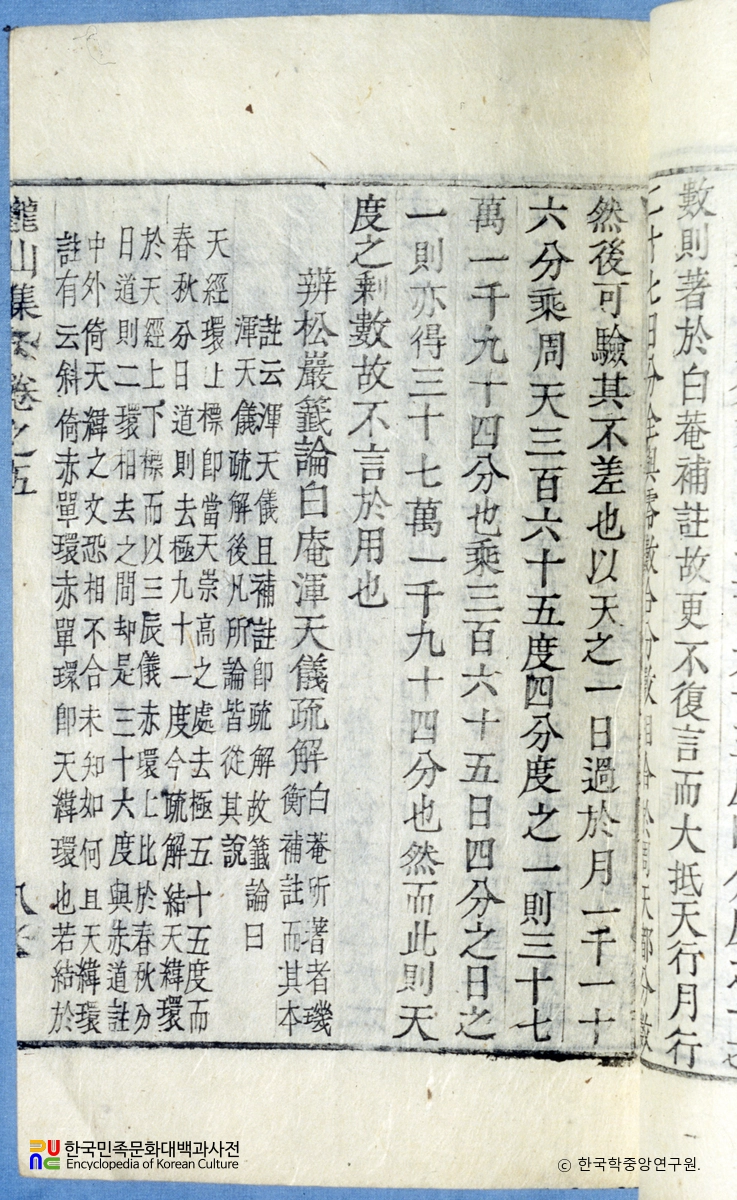 數則著於白菴補註故更不復言而大抵天行月行
然後可驗其不差也以天之一日過於月一千一十
六分乘周天三百六十五度四分度之一則三十七
萬一千九十四分也乘三百六十五日四分之日之
一則亦得三十七萬一千九十四分也然而此則天
度之剩數故不言於用也
辨松巖籤論白庵渾天儀疏解
白菴所著者璣
衡補註而其本
註云渾天儀且補註卽疏解故籤論曰
渾天儀疏解後凡所論皆從其說
天經環上標卽當天崇高之處去極五十五度而
春秋分日道則去極九十一度今疏解結天緯環
於天經上下標而以三辰儀赤環上比於春秋分
日道則二環相去之間却是三十六度與赤道註
中外倚天緯之文恐相不合未知如何且天緯環
註有云斜倚赤單環赤單環卽天緯環也若結於
山集 卷之五
한국민족문화대백과사전
Encyclopedia of Korean Culture
© 한국학중앙연구원.